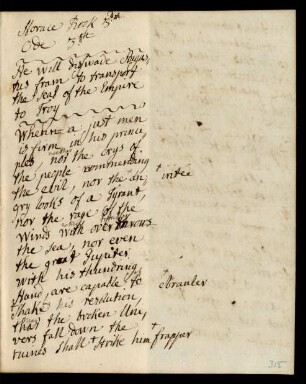 Horace Book 3d
Ode 3d
He will disswade Augus,
tus from to transport
the seat of the Empire
to Troy
Wherin a just men
is firm in his prince,
ples, not the crys of
the people commending
the evil, nor the an,
gry looks of a Tyrant,
nor the rage of the
Winds with over throws
the sea, nor even
the great Jupiter
with his thundring
Hand, are capable to
shake his resolution,
that the broken Uni,
vers fall down the
ruines shall + strike him
+ irritée
ebranler
+ frapper
315